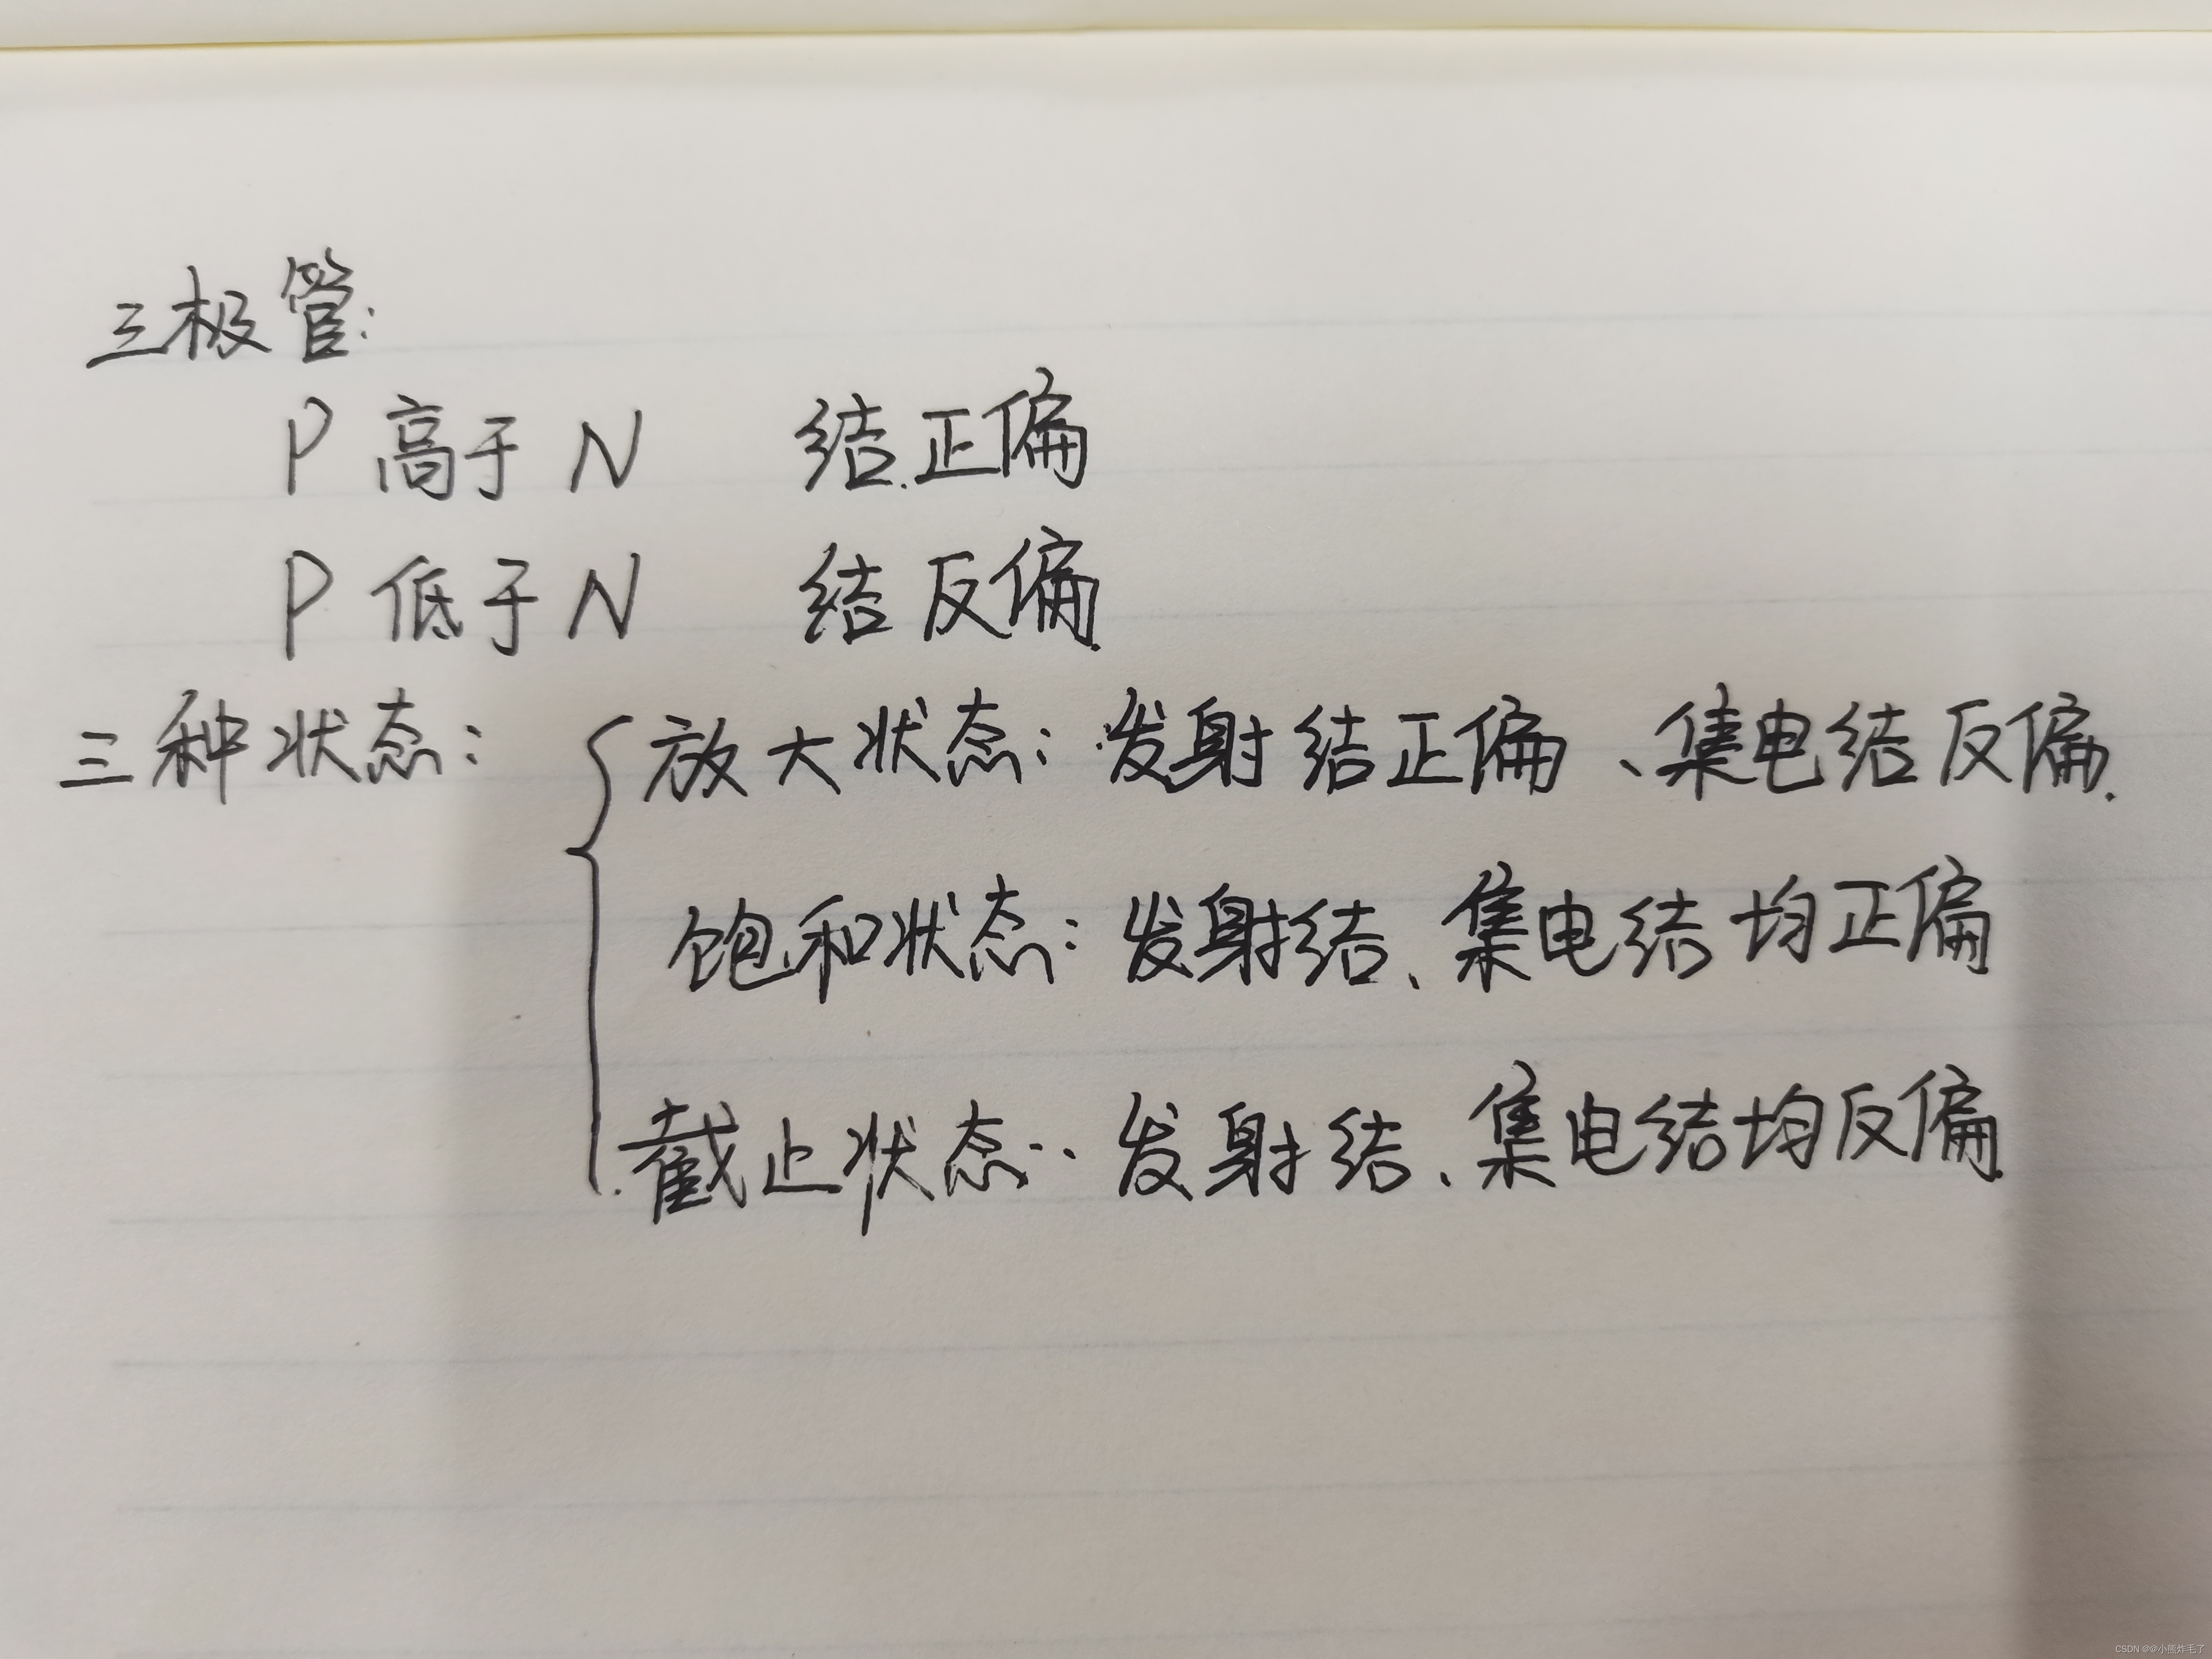 三极管:
P 高于 N 结正偏
P 低于 N 结反偏.
三种状态: 放大状态: 发射结正偏、集电结反偏.
饱和状态: 发射结、集电结均正偏
截止状态: 发射结、集电结均反偏
CSDN @@小熊炸毛了